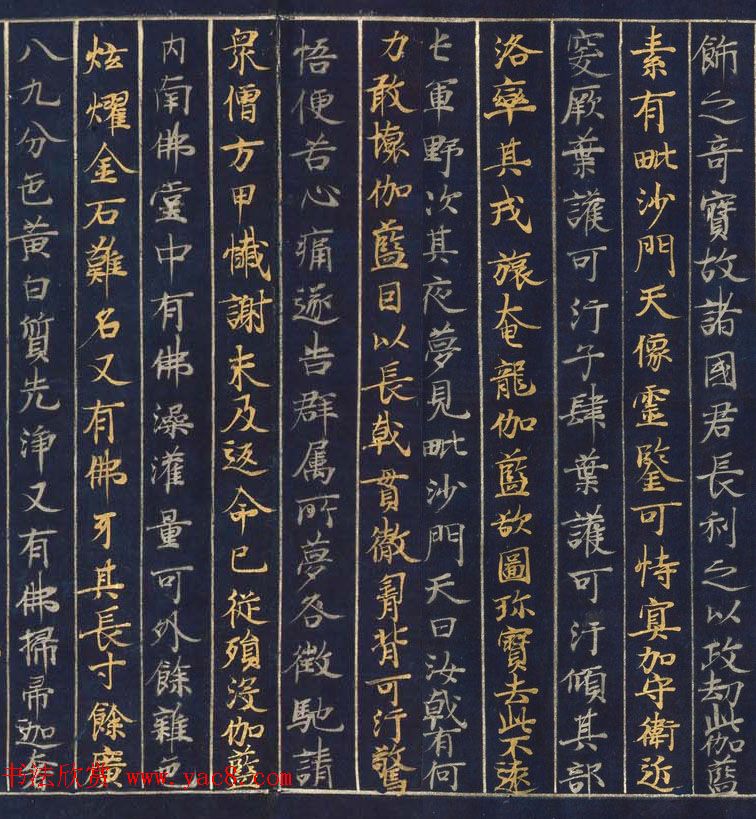 飾之奇寶故諸國君長利之以攻刧此伽藍
素有毗沙門天像靈鑒可恃冥加守衛近
突厥葉護可汗子肆葉護可汗傾其部
洛率其戎旅奄龍伽藍欲圖珎寶去此不遠
屯軍野次其夜夢見毗沙門天曰汝戟有何
力敢壞伽藍因以長戟貫徹胷背可汗驚
悟便苦心痛遂告群属所夢咎徵馳請
衆僧方申懺謝未及返命已從殞没伽藍
内南佛堂中有佛澡灌量可外餘雜色
炫燿金石難名又有佛牙其長寸餘廣
八九分色黃白質光淨又有佛掃帚迦
书法欣赏 www.yac8.com